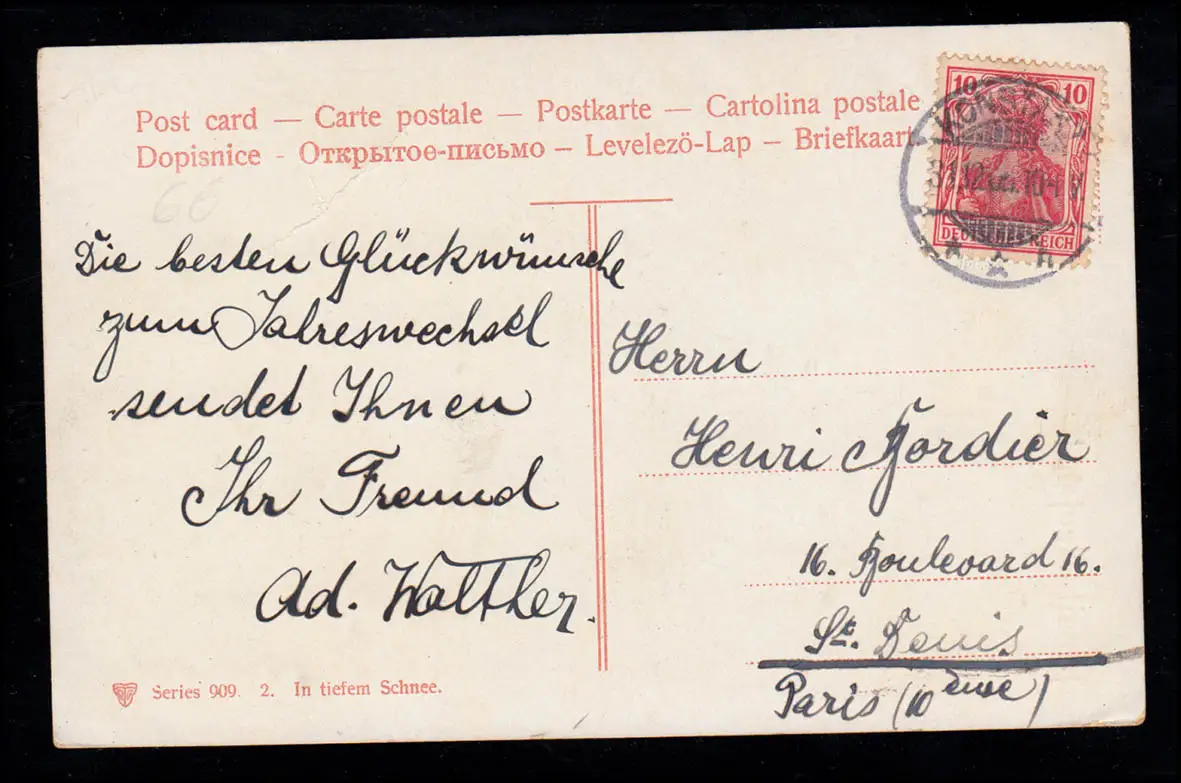 Post card — Carte postale — Postkarte — Cartolina postale
Dopisnice - Открытое-письмо – Levelezö-Lap – Briefkaart
66
10 10
DEUTSCHES REICH
Die besten Glückwünsche
zum Jahreswechsel
sendet Ihnen
Ihr Freund
Ad. Walther.
Herrn
Henri Bordier
16. Boulevard 16.
St. Denis
Paris (10 ème)
Series 909. 2. In tiefem Schnee.